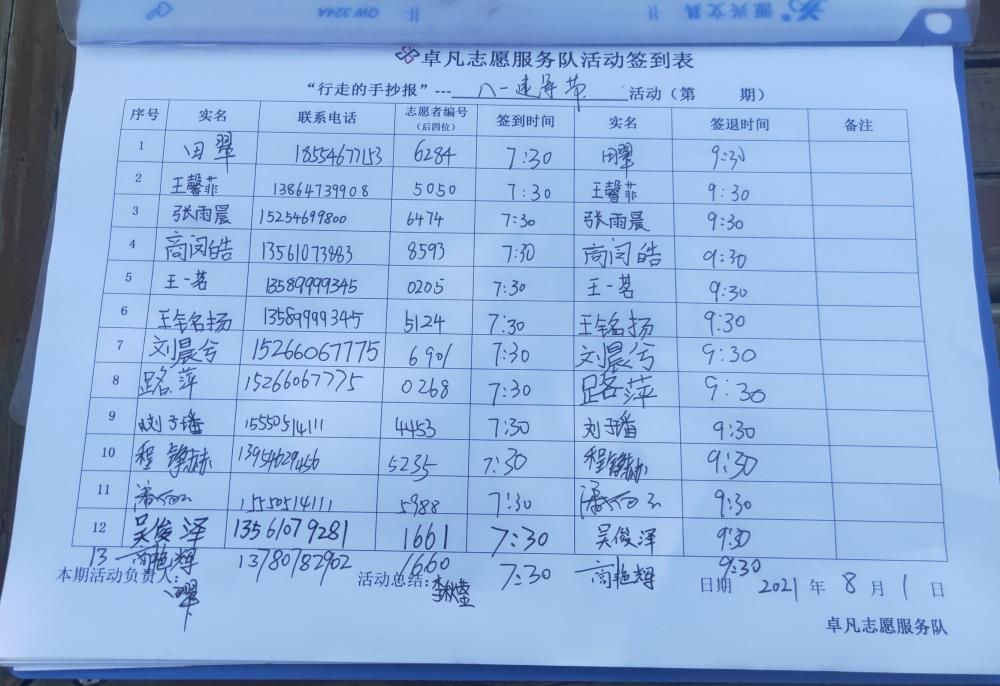 源兴文具 QW 324A
卓凡志愿服务队活动签到表
“行走的手抄报”---八一建军节活动（第 期）
序号 实名 联系电话 志愿者编号（后四位） 签到时间 实名 签退时间 备注
1 田翠 18554677153 6284 7:30 田翠 9:30
2 王馨菲 13864739908 5050 7:30 王馨菲 9:30
3 张雨晨 15254699800 6474 7:30 张雨晨 9:30
4 商闵皓 13561073883 8593 7:30 商闵皓 9:30
5 王一茗 13589999345 0205 7:30 王一茗 9:30
6 王铭扬 13589999345 5124 7:30 王铭扬 9:30
7 刘晨兮 15266067775 6901 7:30 刘晨兮 9:30
8 路萍 15266067775 0268 7:30 路萍 9:30
9 刘子璠 15550514111 4453 7:30 刘子璠 9:30
10 程锦赫 13954629456 5235 7:30 程锦赫 9:30
11 15550514111 5988 7:30 9:30
12 吴俊泽 13561079281 1661 7:30 吴俊泽 9:30
13 高艳辉 13780782902 1660 7:30 高艳辉 9:30
本期活动负责人：田翠 活动总结：李秋莹 日期 2021 年 8 月 1 日
卓凡志愿服务队